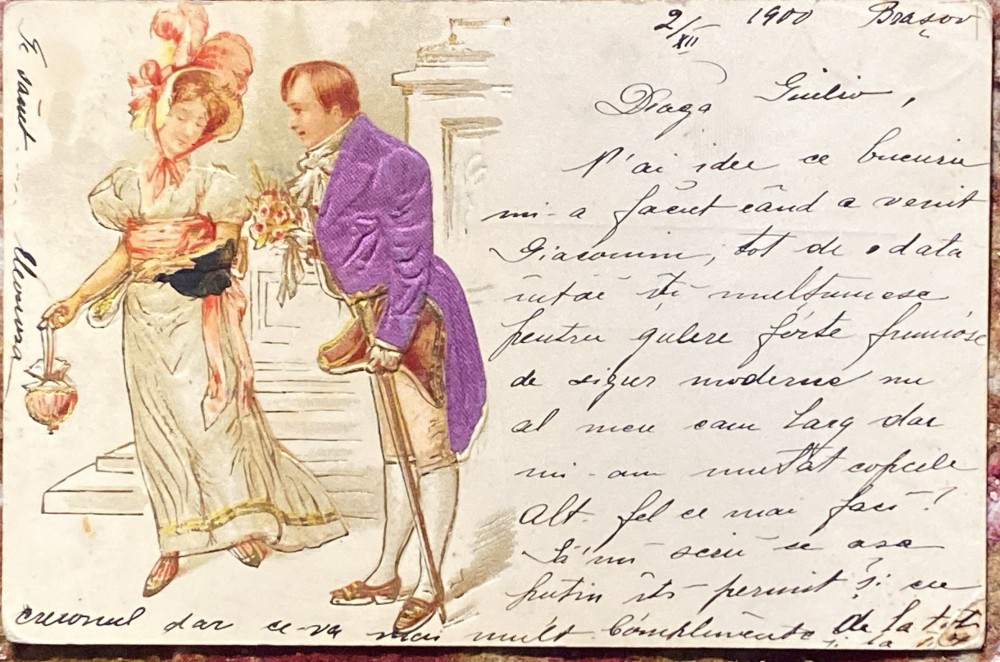 2/XII 1900 Brașov
Draga Giulio,
N'ai idee ce bucurie
mi-a făcut când a venit
Giacomini, tot de odata
intăi iți multumesc
pentru gulere fórte frumóse
de sigur moderne nu
al meu cam larg dar
mi-am mutat copcele
Alt-fel ce mai faci?
Să'mi scrii se asa
putin iți permit și cu
creionul dar ce-va mai mult Complimente de la toti
Te sărut
Eleonora